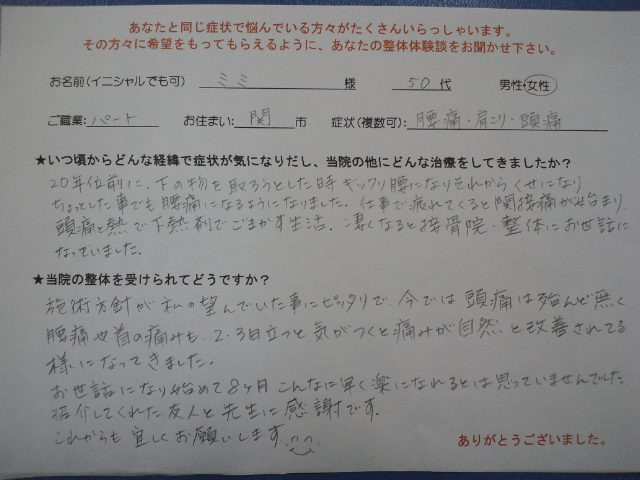 あなたと同じ症状で悩んでいる方々がたくさんいらっしゃいます。
その方々に希望をもってもらえるように、あなたの整体体験談をお聞かせ下さい。
お名前(イニシャルでも可) ミミ 様 50代 男性・女性
ご職業: パート お住まい: 関 市 症状(複数可): 腰痛・肩こり・頭痛
★いつ頃からどんな経緯で症状が気になりだし、当院の他にどんな治療をしてきましたか?
20年位前に、下の物を取ろうとした時ギックリ腰になりそれからくせになり
ちょっとした事でも腰痛になるようになりました。仕事で疲れてくると関接痛が始まり、
頭痛と熱で下熱剤でごまかす生活。凄くなると接骨院・整体にお世話に
なっていました。
★当院の整体を受けられてどうですか?
施術方針が私の望んでいた事にピッタリで、今では頭痛は殆んど無く
腰痛や首の痛みも、2、3日立つと気がつくと痛みが自然と改善されてる
様になってきました。
お世話になり始めて8ヶ月こんなに早く楽になれるとは思っていませんでした
紹介してくれた友人と先生に感謝です。
これからも宜しくお願いします
ありがとうございました。